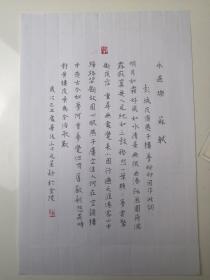 永遇樂 蘇軾
彭城夜宿燕子樓 夢盼盼因作此詞
明月如霜好風如水清景無限曲港跳魚圓荷瀉
露寂寞無人見紞如三鼓鏗然一葉黯黯夢雲驚
斷夜茫茫重尋無處覺來小園行遍天涯倦客山中
歸路望斷故園心眼燕子樓空佳人何在空鎖樓
中燕古今如夢何曾夢覺但有舊歡新怨異時
對黃樓夜景為余浩歎
於金陵